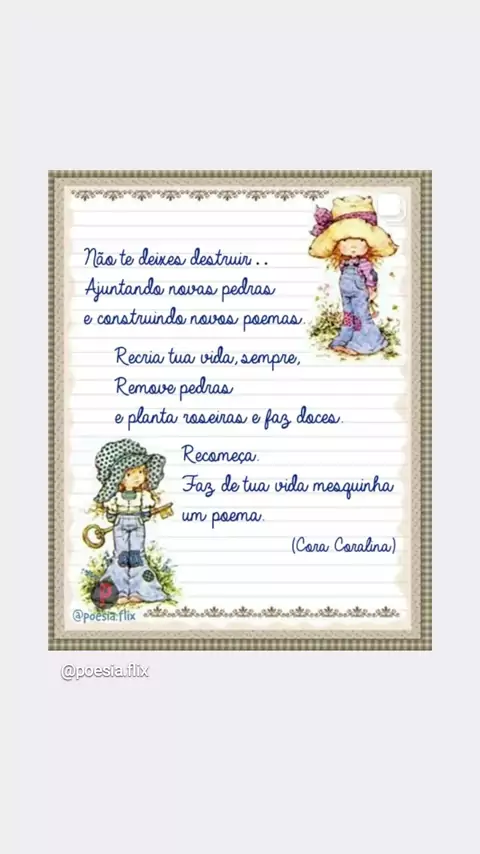 Não te deixes destruir..
Ajuntando novas pedras
e construindo novos poemas.
Recria tua vida, sempre,
Remove pedras
e planta roseiras e faz doces.
Recomeça.
Faz de tua vida mesquinha
um poema.
(Cora Coralina)
@poesia.flix
@poesia.flix